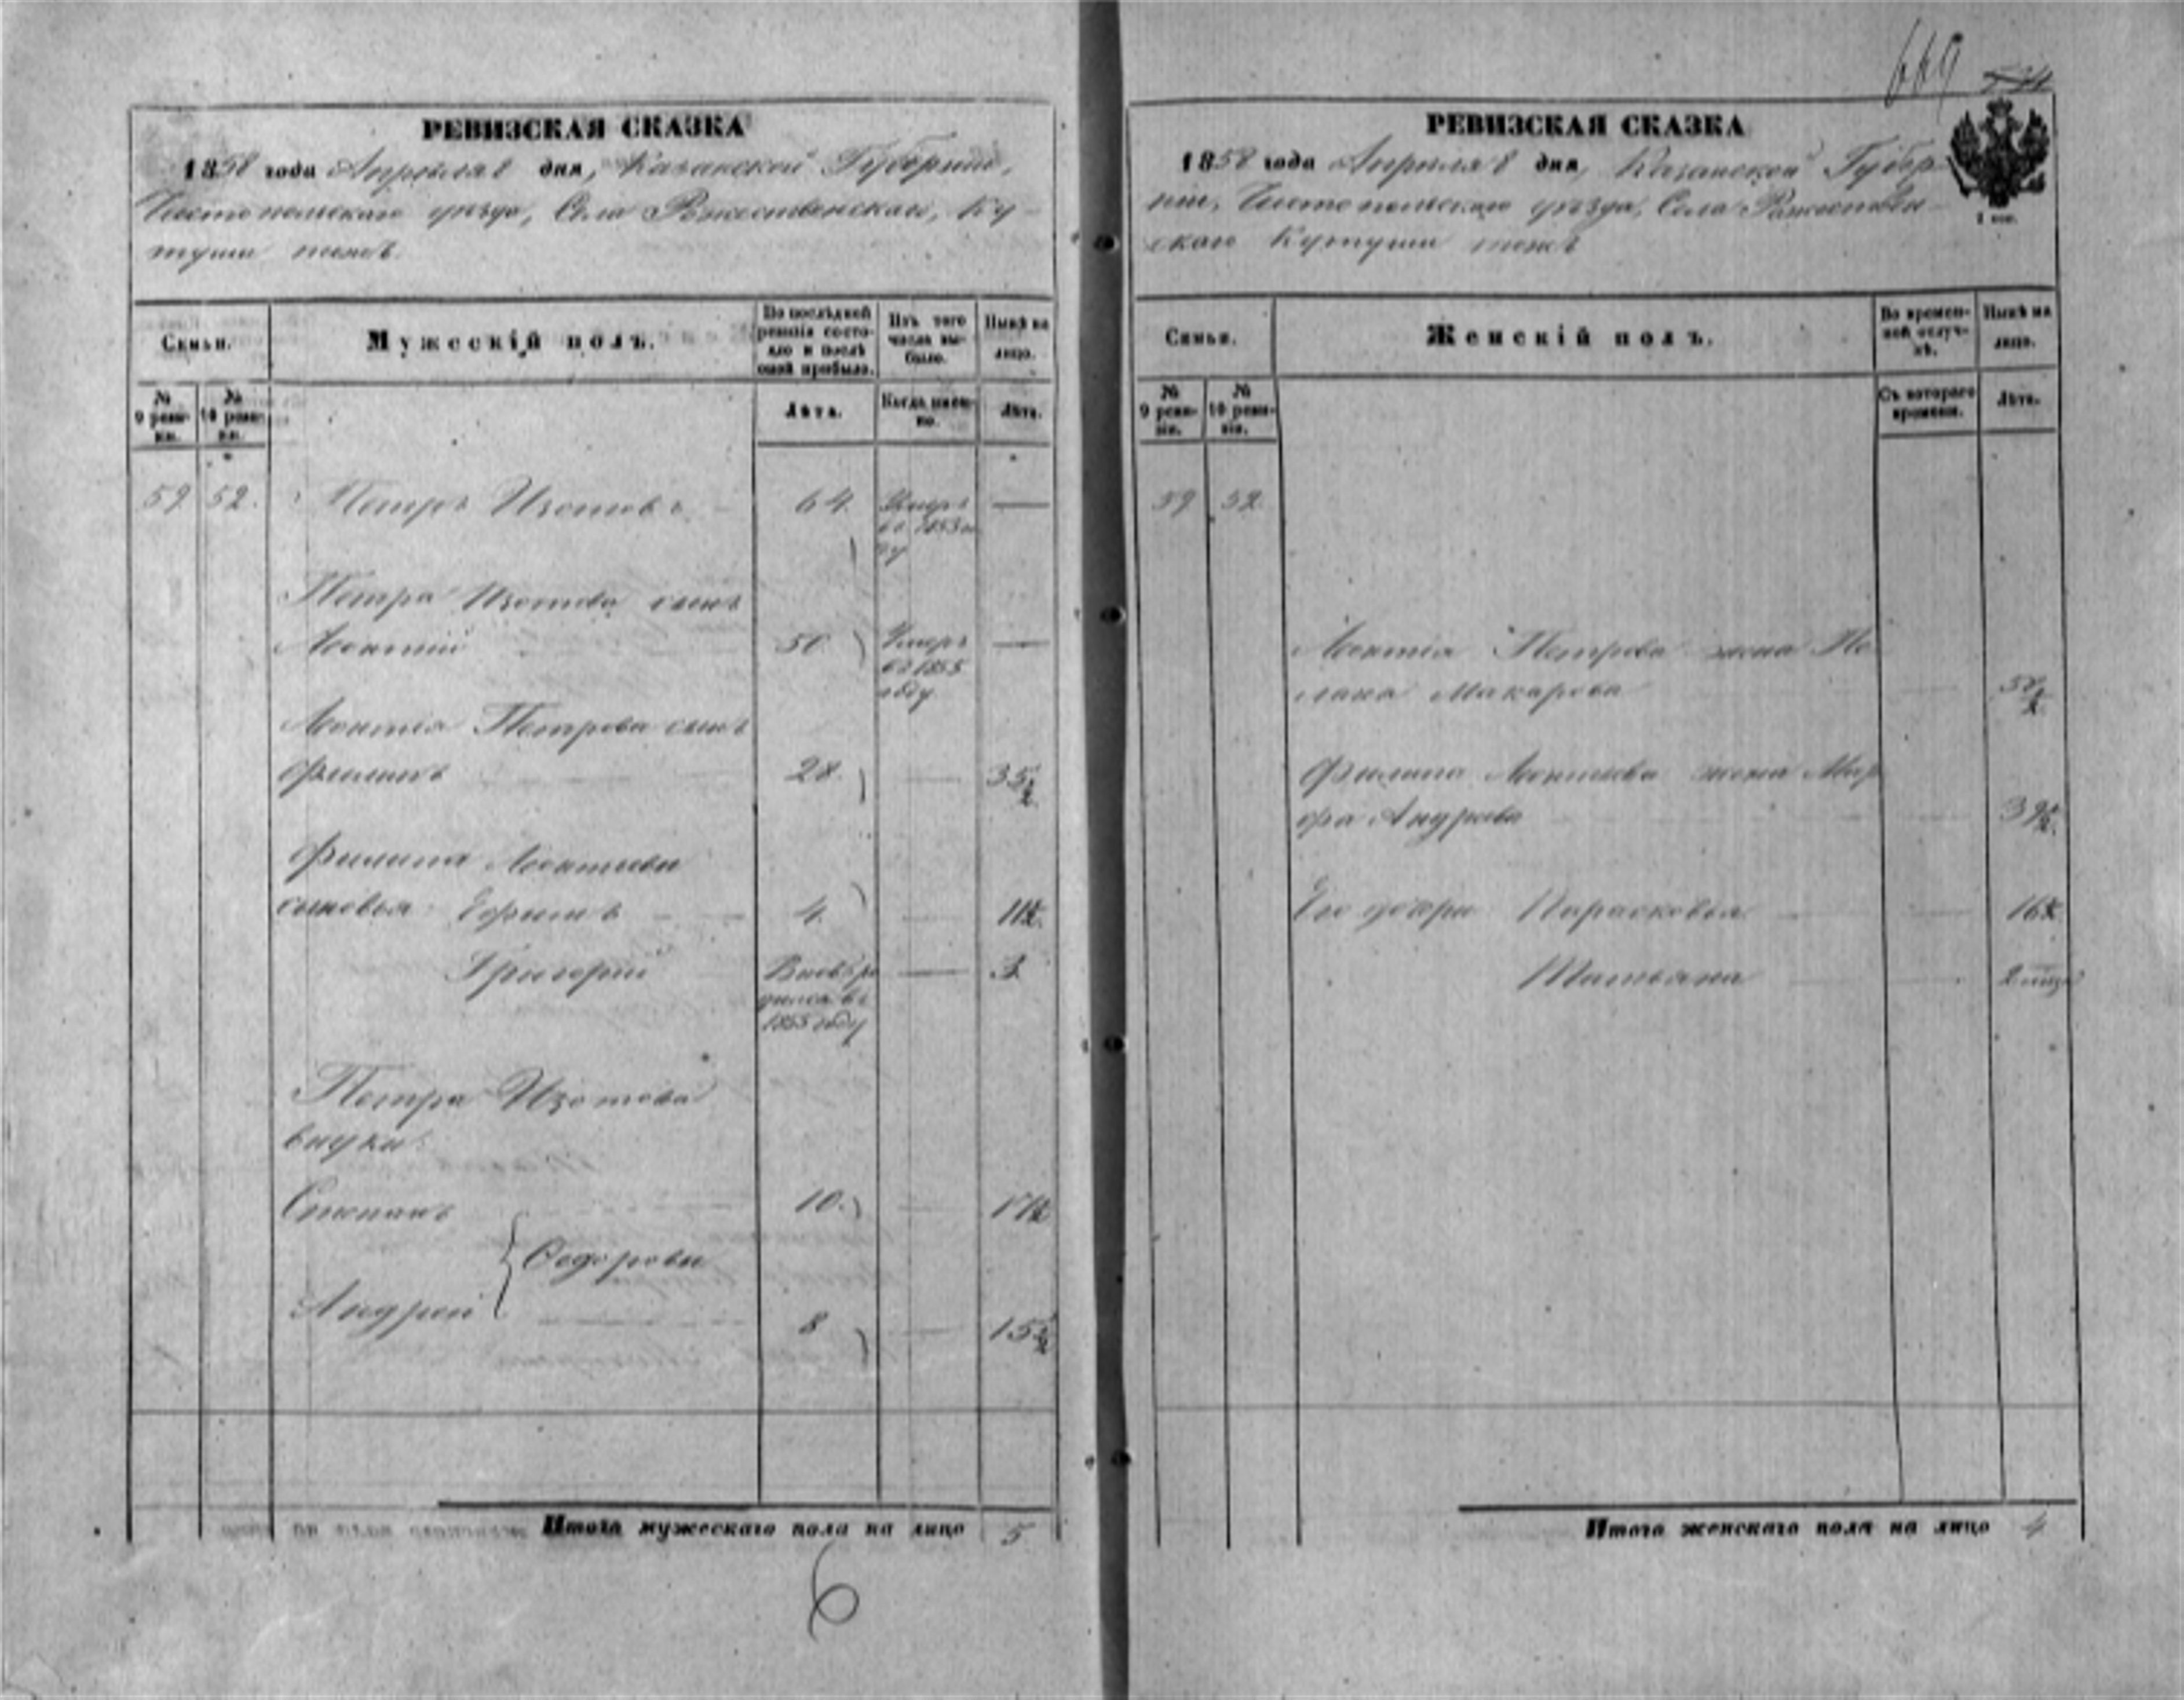 669
РЕВИЗСКАЯ СКАЗКА
1858 года Апреля 8 дня, Казанской Губернии,
Чистопольскаго уезда, Села Рожественскаго, Ку-
туши тожъ.
Семьи.
Мужескій полъ.
По послѣдней ревизіи состояло и послѣ оной прибыло.
Изъ того числа выбыло.
Нынѣ на лицо.
№ 9 ревизіи.
№ 10 ревизіи.
Лѣта.
Когда именно.
Лѣта.
59 52. Петръ Изотовъ 64. Умеръ въ 1853 году —
Петра Изотова сынъ
Леонтій 50 Умеръ въ 1855 году —
Леонтія Петрова сынъ
Филипъ 28. — 35½
Филипа Леонтьева
сыновья Ефимъ 4. — 11½
Григорій Вновь родился въ 1855 году — 3
Петра Изотова
внуки:
Степанъ 10. — 17½
Федоровы
Андрей 8 — 15½
Итого мужескаго пола на лицо 5
6
РЕВИЗСКАЯ СКАЗКА
1858 года Апреля 8 дня, Казанской Губер-
ніи, Чистопольскаго уезда, Села Рожествен-
скаго Кутуши тожъ
Семьи.
Женскій полъ.
Во временной отлучкѣ.
Нынѣ на лицо.
№ 9 ревизіи.
№ 10 ревизіи.
Съ котораго времени.
Лѣта.
59 52
Леонтія Петрова жена
Макарова
Филипа Леонтьева жена Мар
фа Андреева 39½
Его дочери Парасковья 16½
Татьяна
Итого женскаго пола на лицо 4